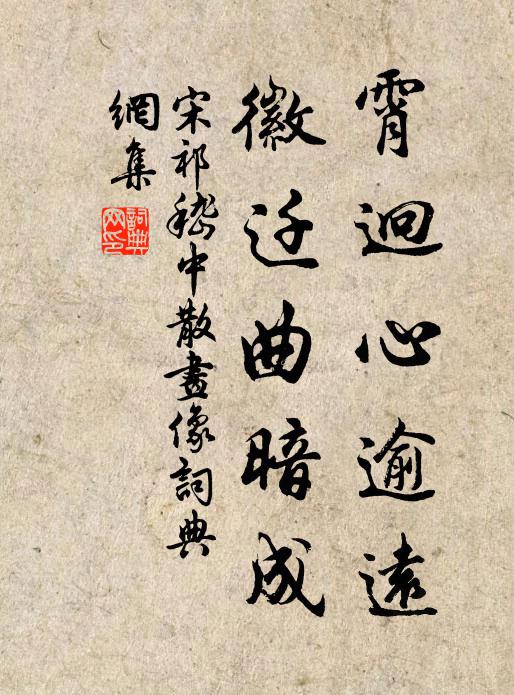 霄迥心逾遠
徽迁曲暗成
宋祁嵇中散畫像詞典
網集
詞典
网印